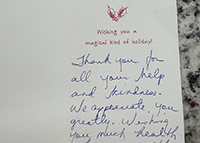 Wishing you a
magical kind of holiday!
Thank you for
all your help
and kindness.
We appreciate you
greatly. Wishing
you much health